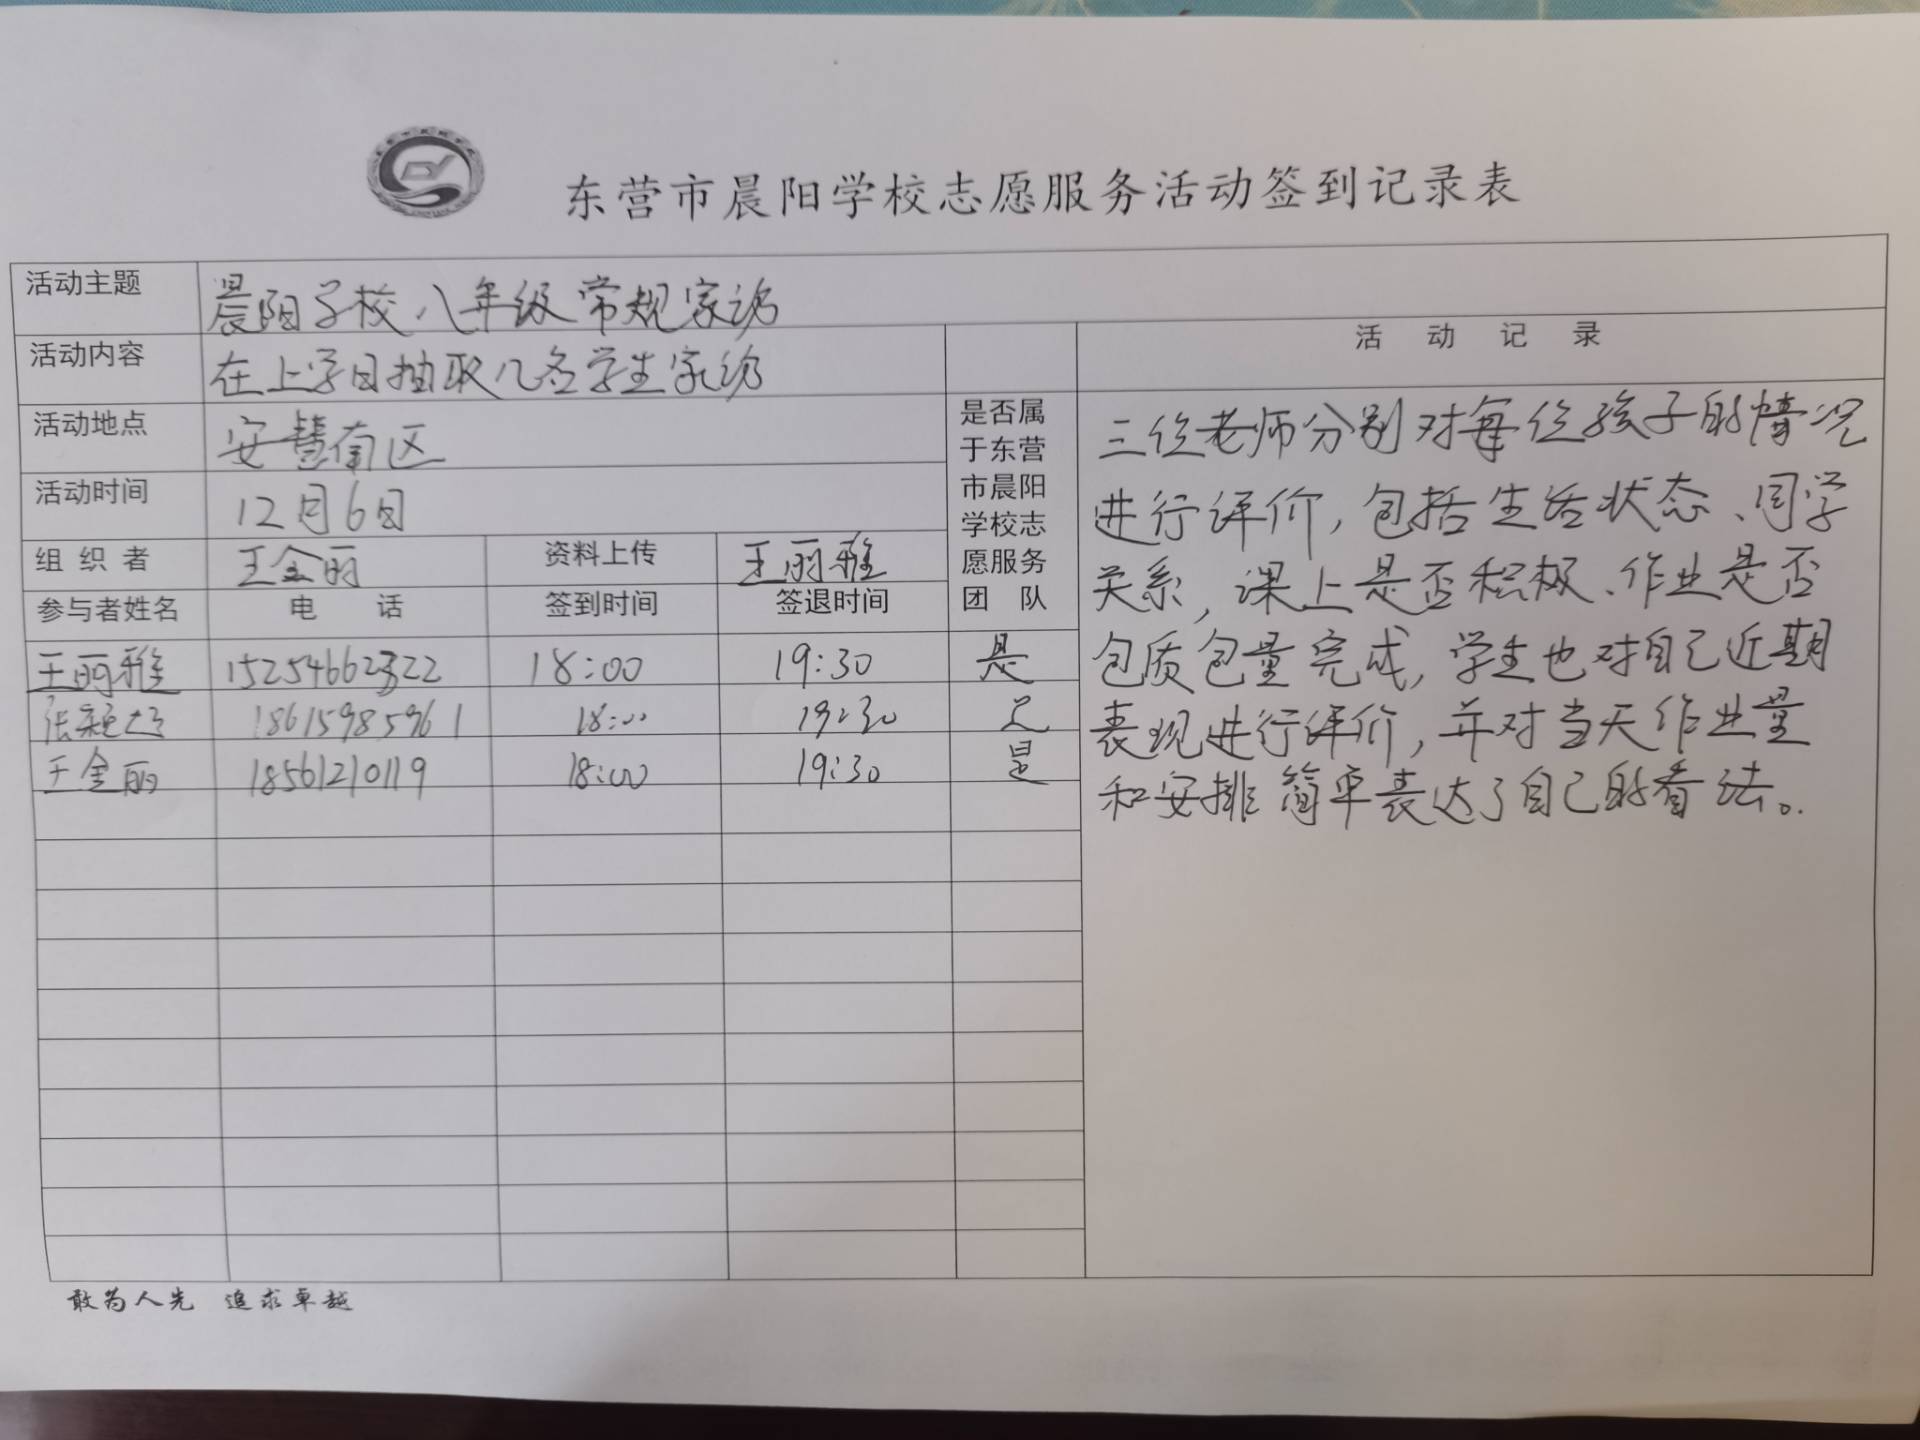 东营市晨阳学校志愿服务活动签到记录表
活动主题 晨阳学校八年级常规家访
活动内容 在上学日抽取几名学生家访
活动地点 安慧南区
活动时间 12月6日
组织者 王金丽 资料上传 王丽雅
参与者姓名 电话 签到时间 签退时间
是否属
于东营
市晨阳
学校志
愿服务
团队
王丽雅 15254662322 18:00 19:30 是
张 18615985961 18:00 19:30 是
王金丽 18561210119 18:00 19:30 是
活动记录
三位老师分别对每位孩子的情况
进行评价,包括生活状态、同学
关系,课上是否积极、作业是否
包质包量完成,学生也对自己近期
表现进行评价,并对当天作业量
和安排简单表达了自己的看法。
敢为人先 追求卓越